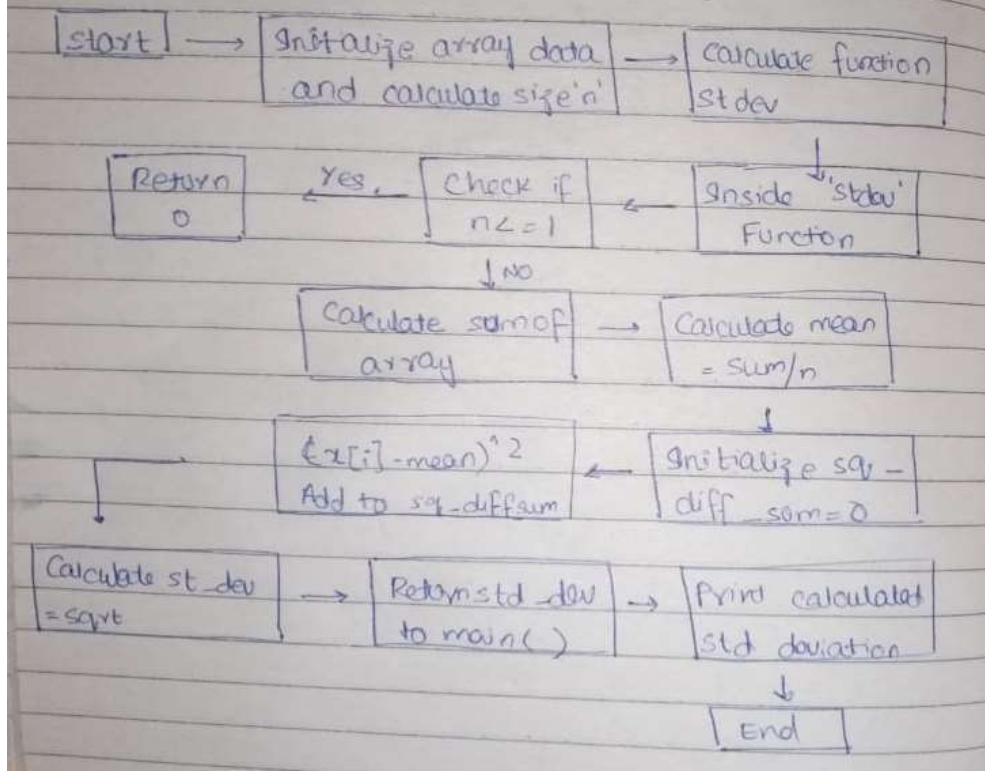 Start
Initalize array data
and calculate size 'n'
calculate function
stdev
Return
0
Yes.
Check if
n<=1
Inside 'stdev'
Functon
NO
Calculate sum of
array
Calculate mean
= sum/n
(x[i]-mean)^2
Add to sq_diffsum
Initialize sq-
diff_sum=0
Calculate st_dev
=sqrt
Return std_dev
to main()
Print calculated
std deviation
End